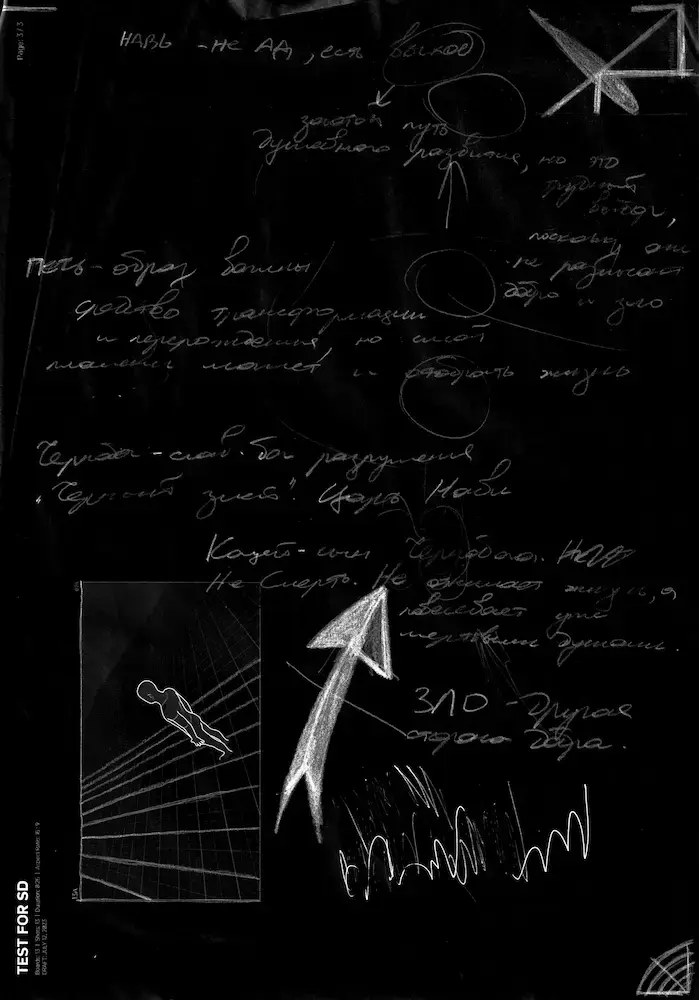 Page: 3 / 3
НАВЬ - НЕ АД, есть выход
золотой путь
душевного развития, но это
трудный
выбор,
поскольку они
не различают
добро и зло
Печь - образ
средство трансформации
и перерождения, но
пламени может и отобрать жизнь
Чернобог - слав. бог разрушения
"Черный змей". Царь Нави
Кощей - сын Чернобога.
Не Смерть. Не отнимает жизнь, а
повелевает уже
мертвыми душами.
ЗЛО - Другая
сторона Добра.
13A
TEST FOR SD
Boards: 13 | Shots: 13 | Duration: 0:26 | Aspect Ratio: 16:9
DRAFT: JULY 12, 2023